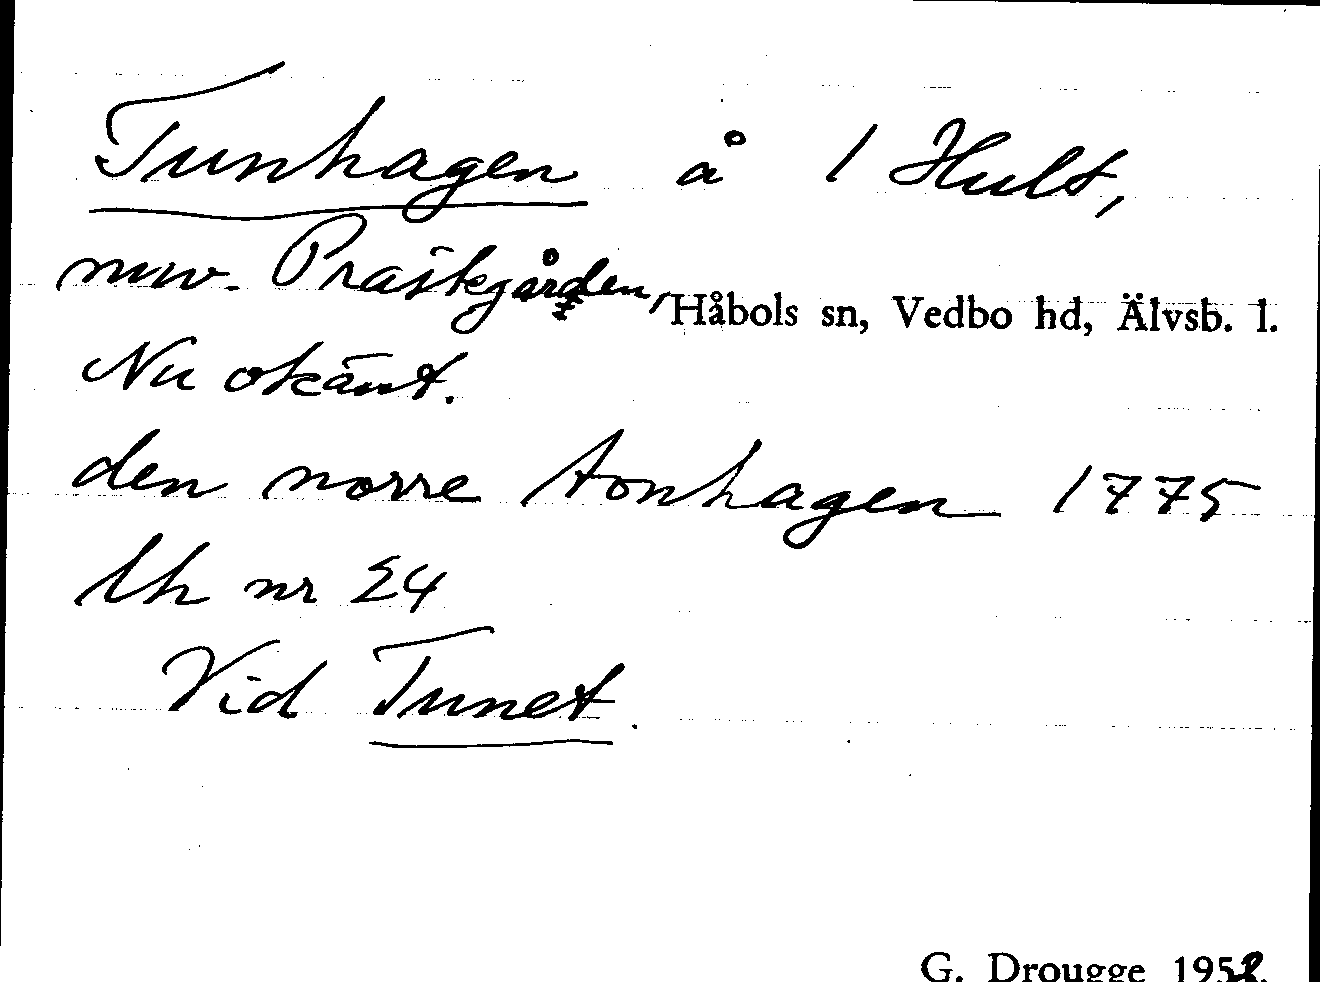 Tunhagen å 1 Hult,
nuv. Prästgården, Håbols sn, Vedbo hd, Älvsb. l.
Nu okänt.
den norre tonhagen 1775
lh nr 24
Vid Tunet.
G. Drougge 1952.